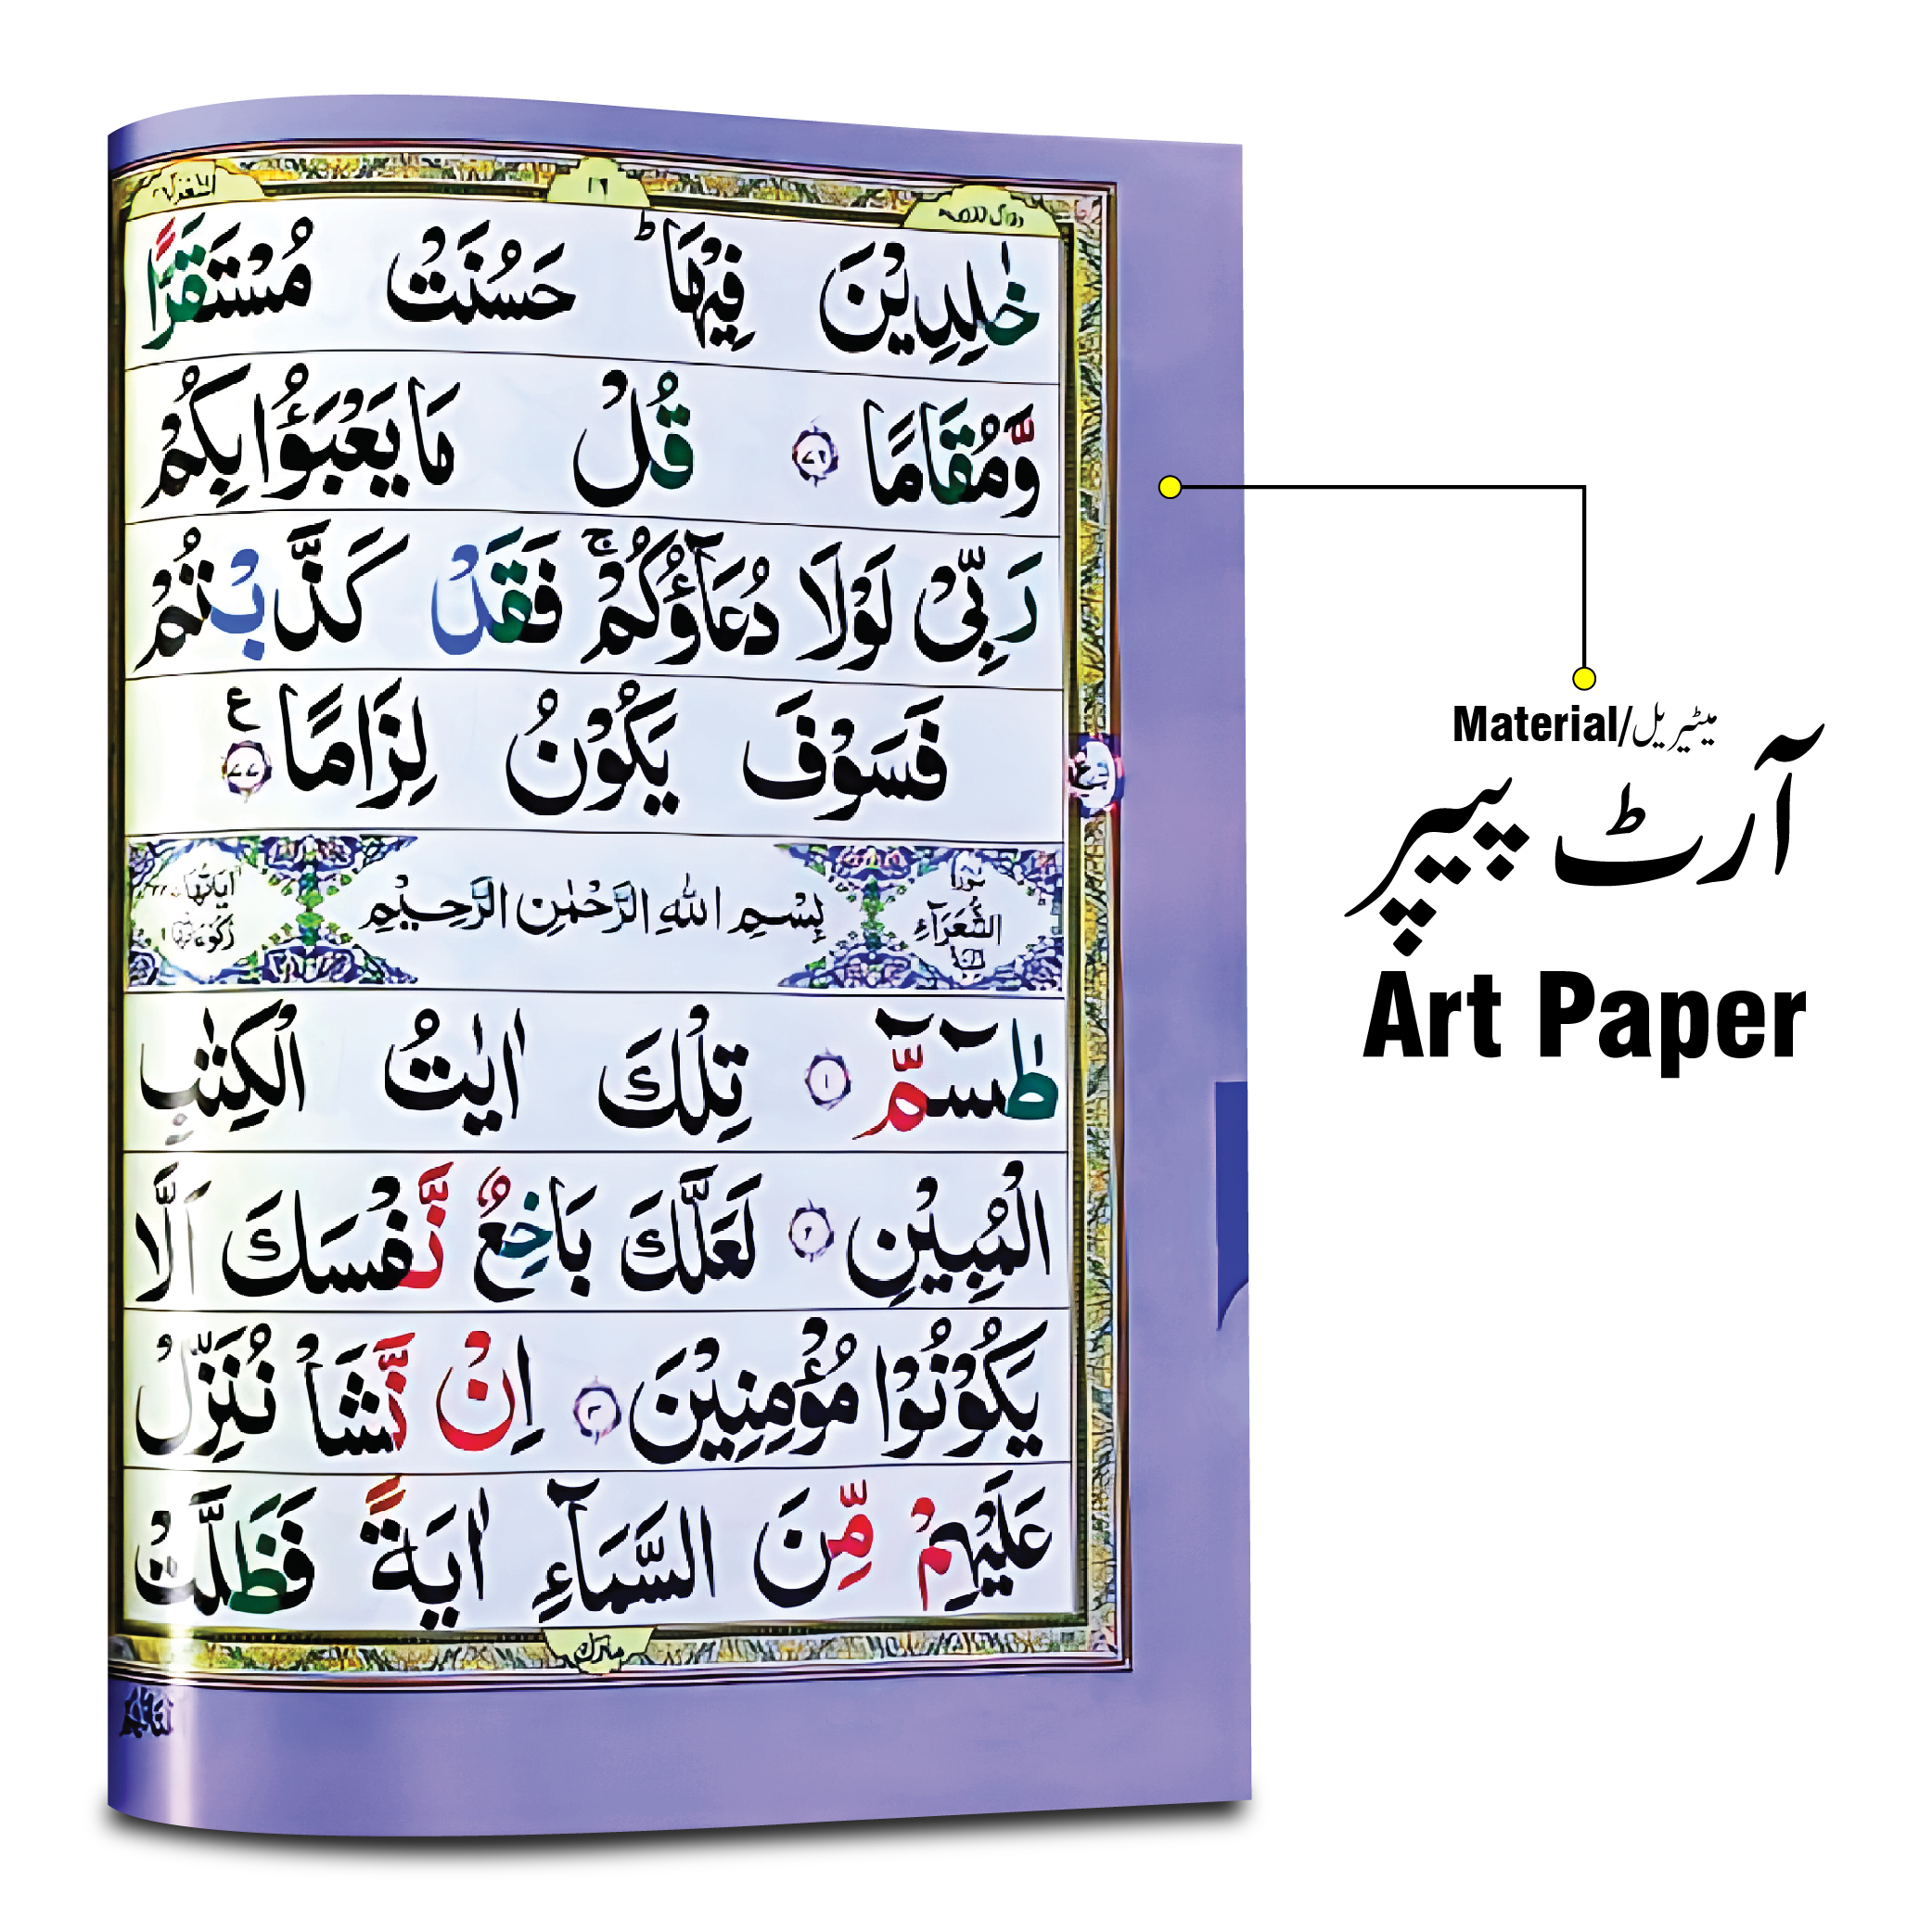 الشعرآء ٢٦
١٩
وقال الذين
خٰلِدِيْنَ فِيْهَا ؕ حَسُنَتْ مُسْتَقَرًّا
وَّمُقَامًا ٧٦ قُلْ مَا يَعْبَؤُا بِكُمْ
رَبِّيْ لَوْلَا دُعَآؤُكُمْ ۚ فَقَدْ كَذَّبْتُمْ
فَسَوْفَ يَكُوْنُ لِزَامًا ٧٧ ع
سورة الشُّعَرَآءِ بِسْمِ اللهِ الرَّحْمٰنِ الرَّحِيْمِ اٰيَاتُهَا
طٰسٓمّٓ ١ تِلْكَ اٰيٰتُ الْكِتٰبِ
الْمُبِيْنِ ٢ لَعَلَّكَ بَاخِعٌ نَّفْسَكَ اَلَّا
يَكُوْنُوْا مُؤْمِنِيْنَ ٣ اِنْ نَّشَاْ نُنَزِّلْ
عَلَيْهِمْ مِّنَ السَّمَآءِ اٰيَةً فَظَلَّتْ
منزل
Material/میٹیریل
آرٹ پیپر
Art Paper